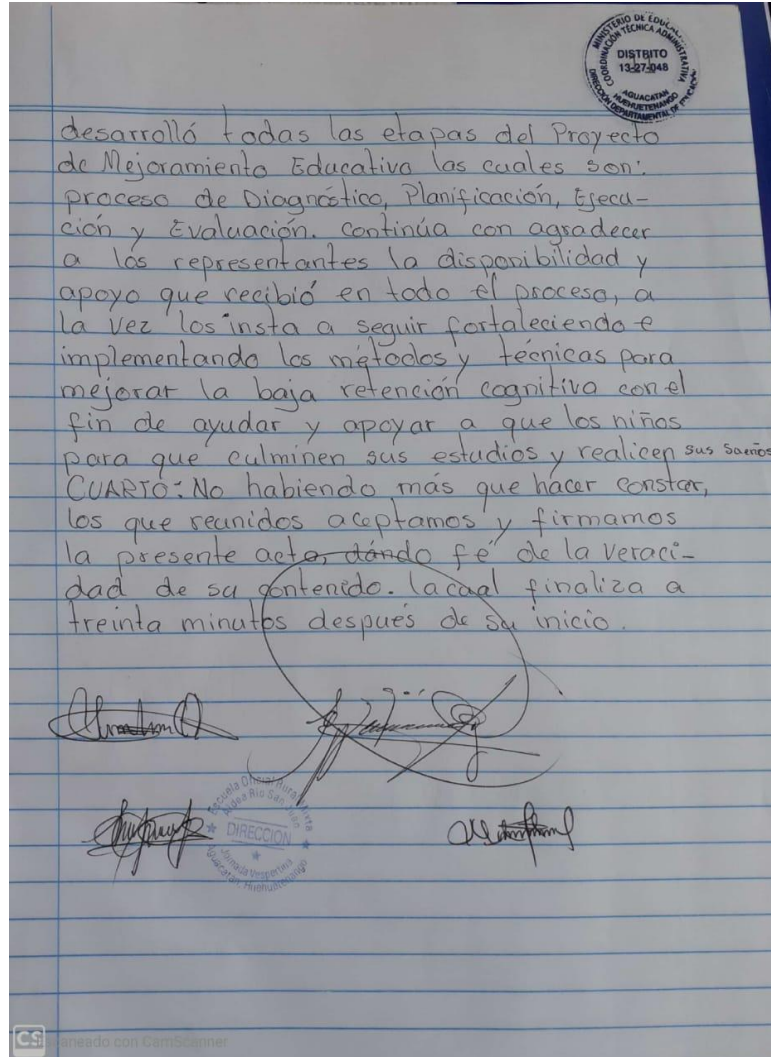 MINISTERIO DE EDUCACIÓN
COORDINACIÓN TÉCNICA ADMINISTRATIVA
DISTRITO
13-27-048
AGUACATAN
HUEHUETENANGO
DIRECCIÓN DEPARTAMENTAL DE EDUCACIÓN
desarrolló todas las etapas del Proyecto
de Mejoramiento Educativo las cuales son:
proceso de Diagnóstico, Planificación, Ejecu-
ción y Evaluación. Continúa con agradecer
a los representantes la disponibilidad y
apoyo que recibió en todo el proceso, a
la vez los insta a seguir fortaleciendo e
implementando los métodos y técnicas para
mejorar la baja retención cognitiva con el
fin de ayudar y apoyar a que los niños
para que culminen sus estudios y realicen sus sueños
CUARTO: No habiendo más que hacer constar,
los que reunidos aceptamos y firmamos
la presente acta, dándo fé de la veraci-
dad de su contenido. la cual finaliza a
treinta minutos después de su inicio.
Escuela Oficial Rural Mixta
Aldea Río San Juan
DIRECCIÓN
Jornada Vespertina
Aguacatan, Huehuetenango
CS Escaneado con CamScanner